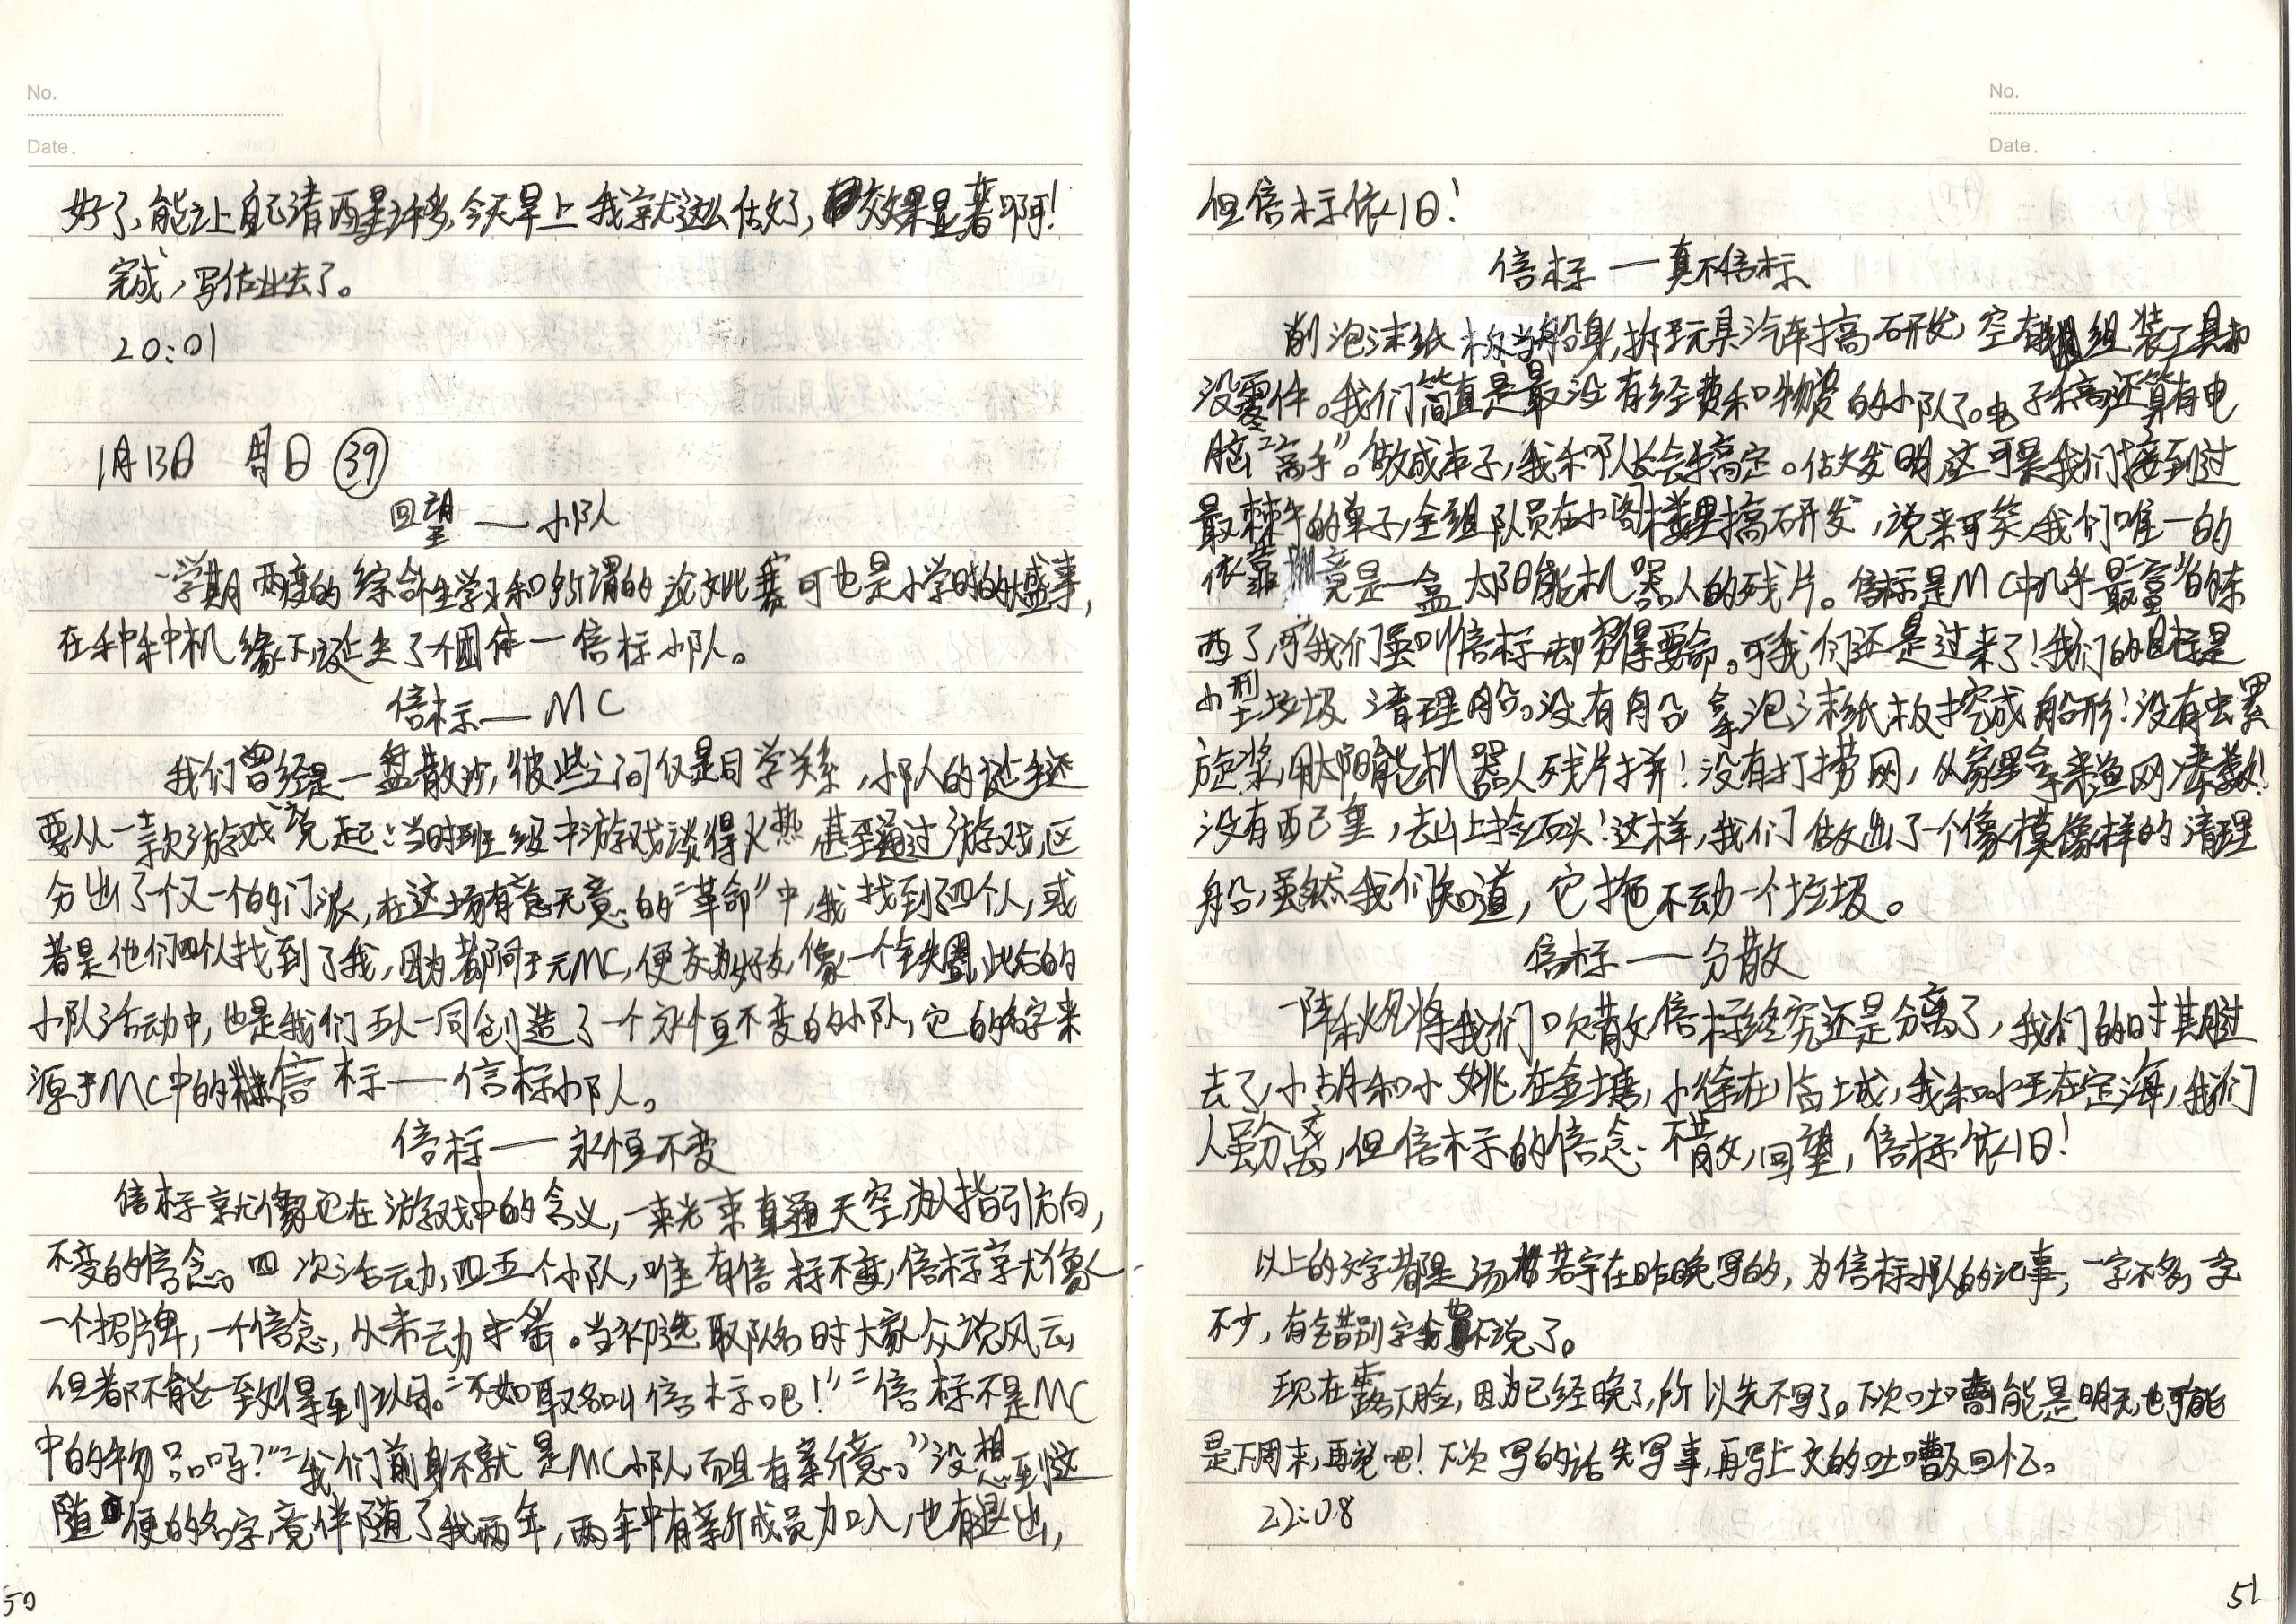 No.
Date.
好了,能让自己清醒许多,今天早上我就这么做了,效果显著啊!
完成,写作业去了。
20:01
1月13日 周日 ㊴
回望 — 小队
一学期两度的综合性学习和所谓的论文比赛可也是小学时的盛事,
在种种机缘下诞生了个团体一信标小队。
信标 — MC
我们曾经是一盘散沙,彼此之间仅是同学关系,小队的诞生还
要从一款游戏说起:当时班级中游戏谈得火热,甚至通过游戏,区
分出了一个又一个的门派,在这场有意无意的“革命”中,我找到了四个人,或
者是他们四人找到了我,因为都同于玩MC,便交为好友,像一个铁圈,此后的
小队活动中,也是我们五人一同创造了一个永恒不变的小队,它的名字来
源于MC中的信标—信标小队。
信标 — 永恒不变
信标就像它在游戏中的含义,一束光束直通天空为人指引方向,
不变的信念。四次活动,四五个小队,唯有信标不变,信标就像
一个招牌,一个信念,从未动摇。当初选取队名时大家众说风云,
但都不能一致得到认同。“不如取名叫信标吧!”“信标不是MC
中的物品吗?”“我们前身不就是MC小队,而且有新意。”没想到这
随便的名字,竟伴随了我两年,两年中有新成员加入,也有退出,
50
No.
Date.
但信标依旧!
信标 — 真不信标
削泡沫纸板当船身,拆玩具汽车搞研发,空有组装工具却
没零件。我们简直是最没有经费和物资的小队了。电子稿还算有电
脑“高手”。做成本子,我和队长会搞定。做发明,这可是我们接到过
最棘手的单子,全组队员在小阁楼里搞研发,说来可笑,我们唯一的
依靠竟是一盒太阳能机器人的残片。信标是MC中几乎最富的东
西了,可我们虽叫信标,却穷得要命。可我们还是过来了!我们的目标是
小型垃圾清理船。没有船,拿泡沫纸板挖成船形!没有螺
旋桨,用太阳能机器人残片拼!没有打捞网,从家里拿来渔网凑数!
没有配重,去山上捡石头!这样,我们做出了一个像模像样的清理
船,虽然我们知道,它拖不动一个垃圾。
信标 — 分散
一阵秋风将我们吹散,信标终究还是分离了,我们的时期过
去了,小胡和小姚在金塘,小徐在临城,我和小王在定海,我们
人虽分离,但信标的信念不散,回望,信标依旧!
以上的文字都是汤若宇在昨晚写的,为信标小队的记事,一字不多,一字
不少,有错别字我不说了。
现在露下脸,因为已经晚了,所以先不写了。下次吐槽可能是明天,也可能
是下周末,再说吧!下次写的话先写事,再写上文的吐槽及回忆。
22:08
51